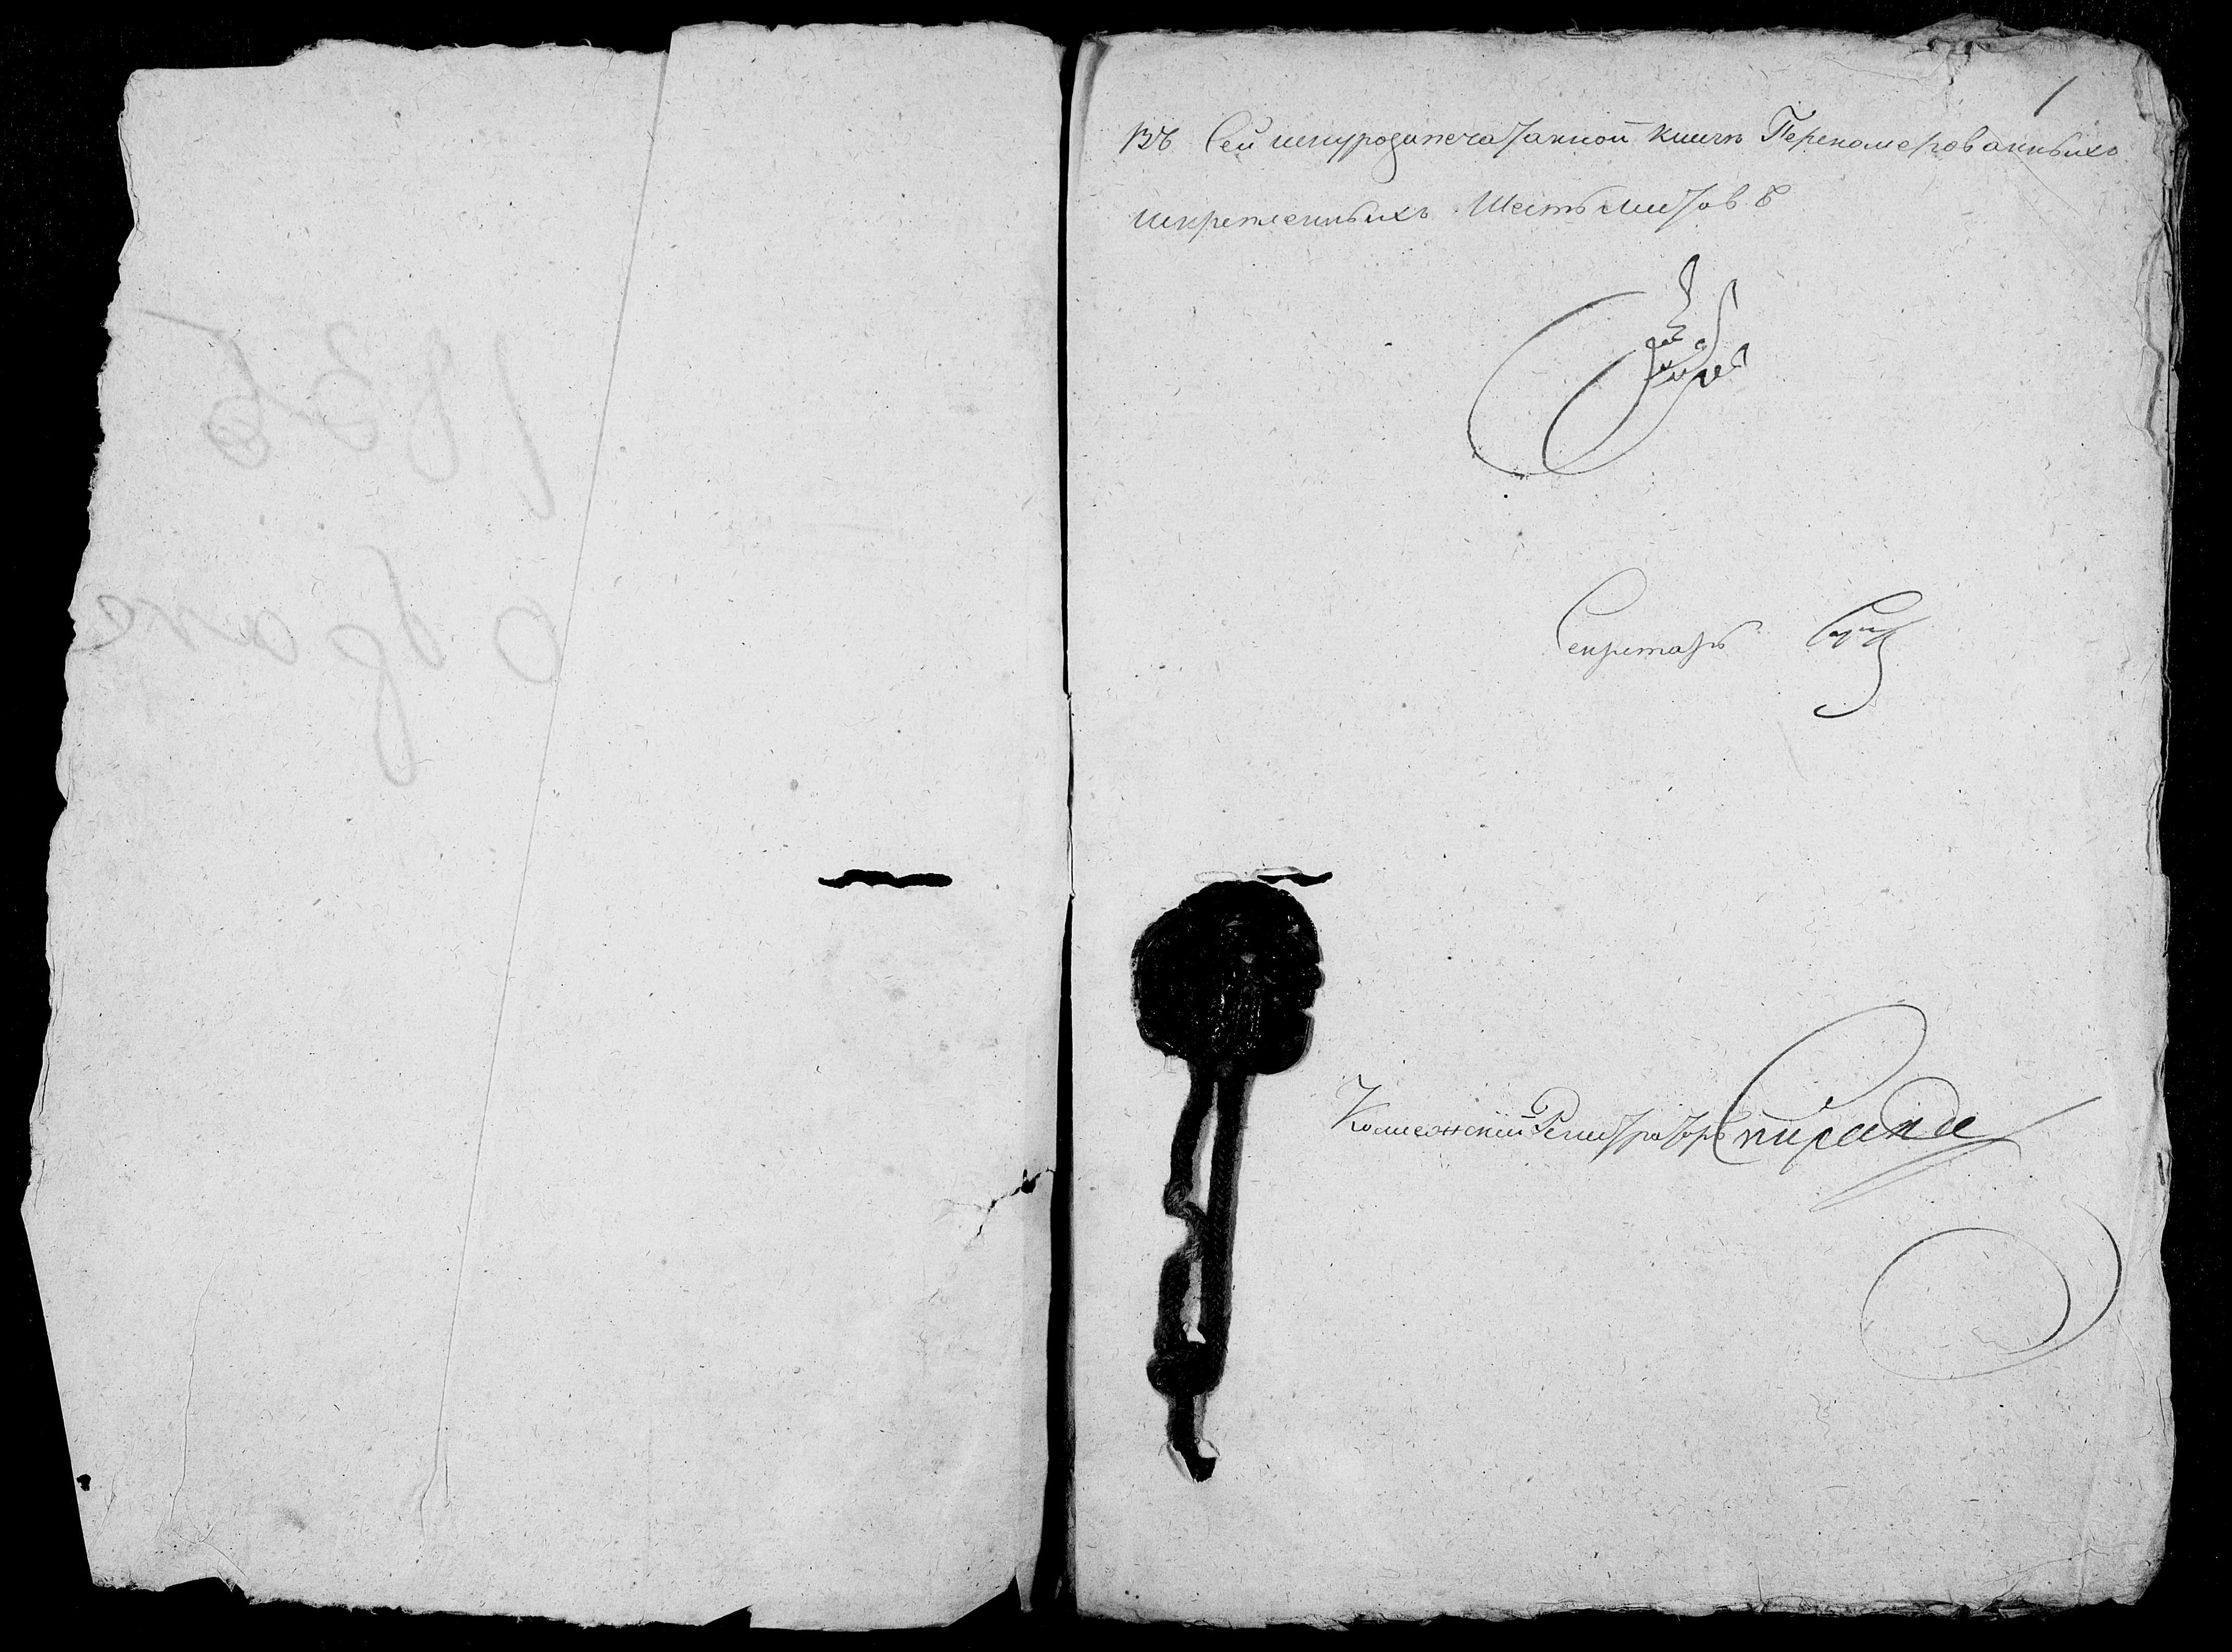 1835
о браке
1
Въ Сей шнурозапечатанной книге Переномерованныхъ
искрепленныхъ Шесть листовъ
Секретарь
Колежский Регистраторъ